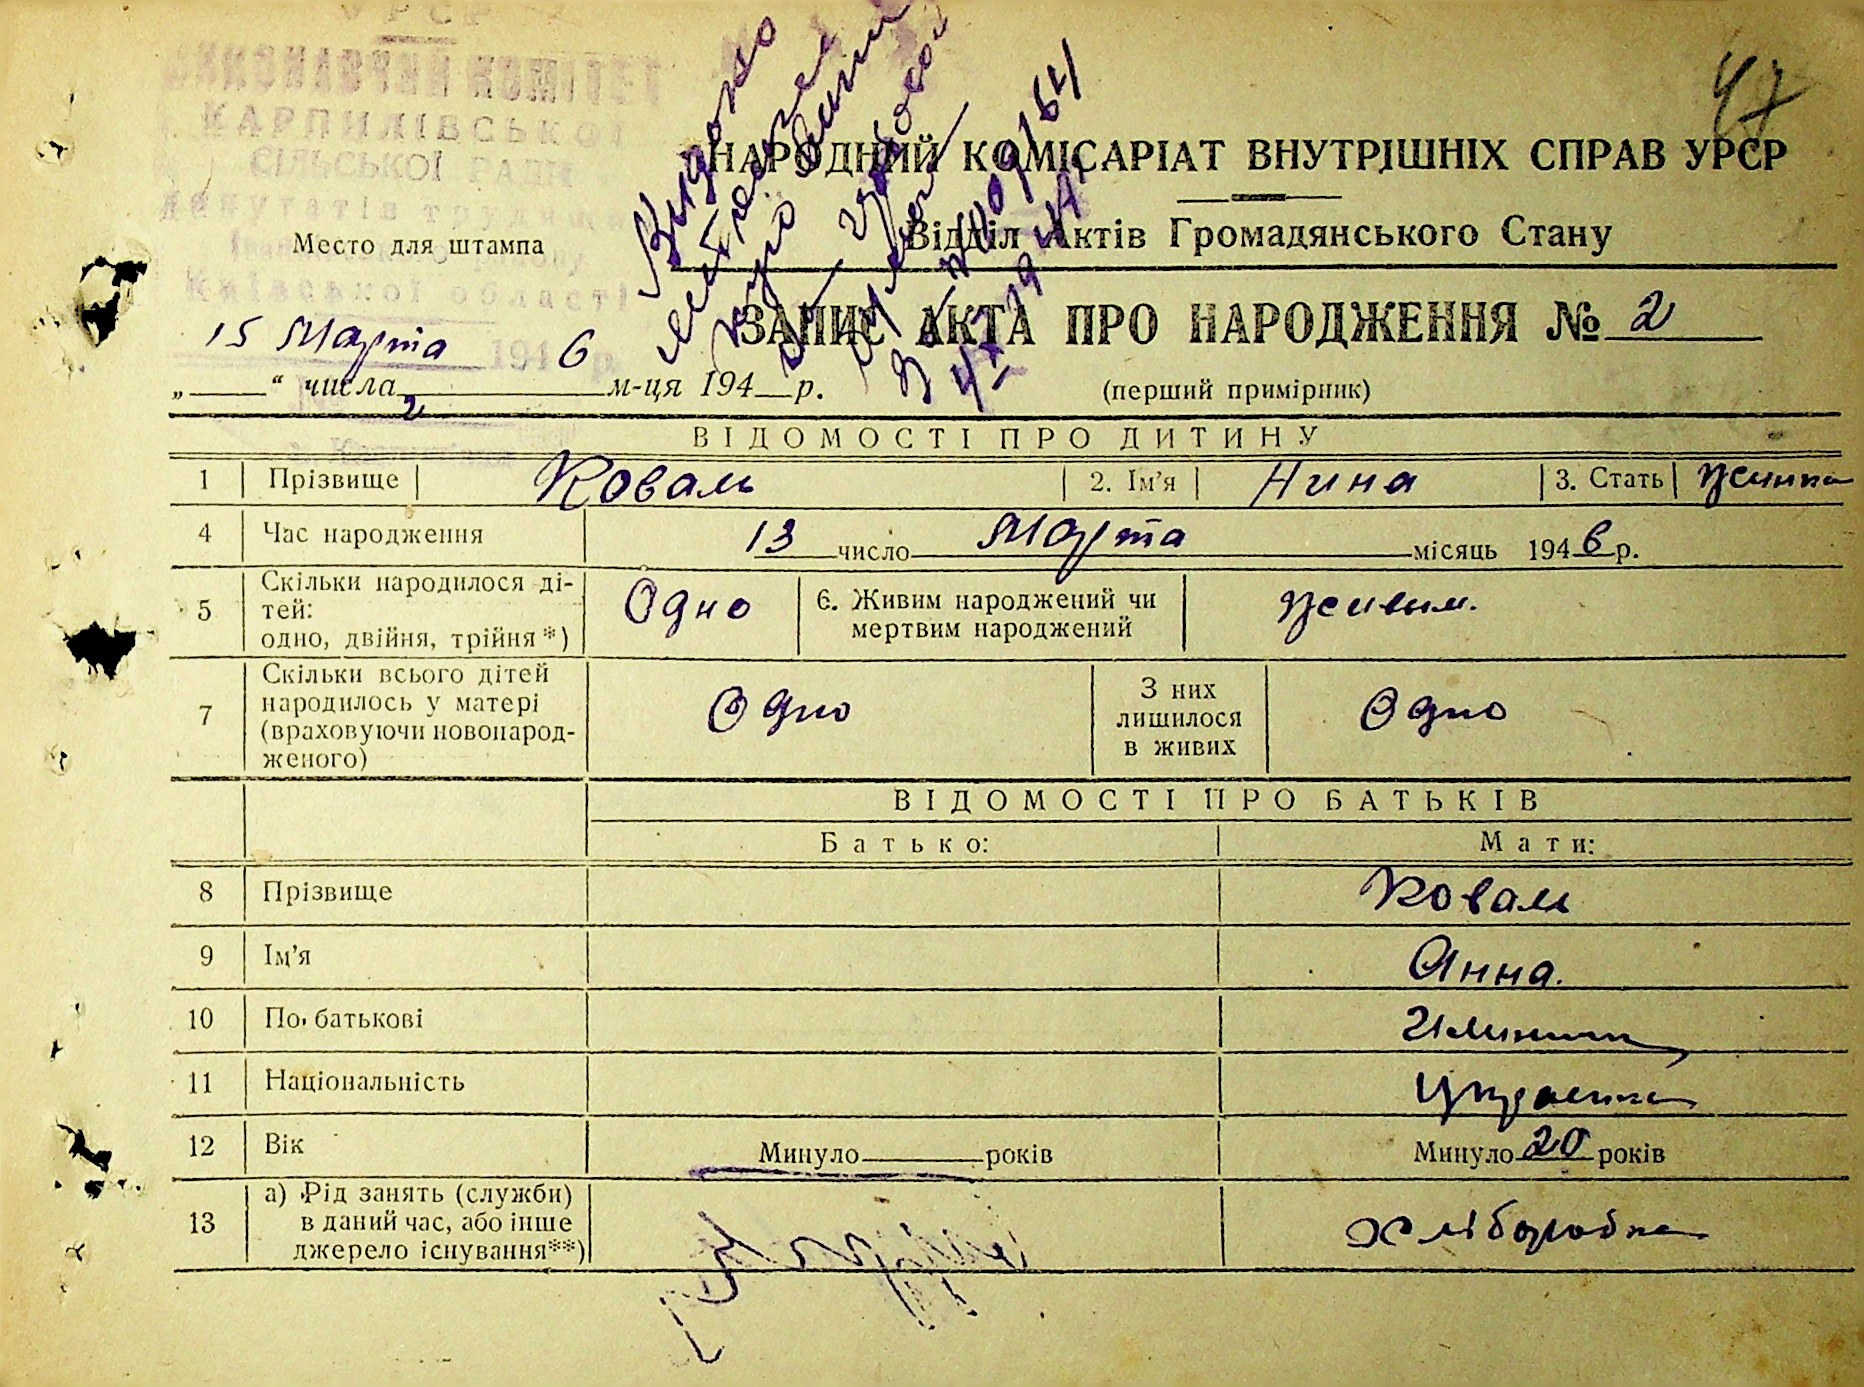 УРСР
ВИКОНАВЧИЙ КОМІТЕТ
КАРПИЛІВСЬКОЇ
СІЛЬСЬКОЇ РАДИ
депутатів трудящих
Київської області
47
НАРОДНИЙ КОМІСАРІАТ ВНУТРІШНІХ СПРАВ УРСР
Место для штампа
Відділ Актів Громадянського Стану
ЗАПИС АКТА ПРО НАРОДЖЕННЯ № 2
15 Марта 6
„ “ числа м-ця 194 р.
(перший примірник)
ВІДОМОСТІ ПРО ДИТИНУ
1 Прізвище Коваль 2. Ім’я Нина 3. Стать
4 Час народження 13 число Марта місяць 1946 р.
5 Скільки народилося ді-
тей:
одно, двійня, трійня *) Одно 6. Живим народжений чи
мертвим народжений живым.
7 Скільки всього дітей
народилось у матері
(враховуючи новонарод-
женого) Одно З них
лишилося
в живих Одно
ВІДОМОСТІ ПРО БАТЬКІВ
Батько: Мати:
8 Прізвище Коваль
9 Ім’я Анна.
10 По батькові
11 Національність Украинка
12 Вік Минуло років Минуло 20 років
13 а) Рід занять (служби)
в даний час, або інше
джерело існування**) Хліборобка